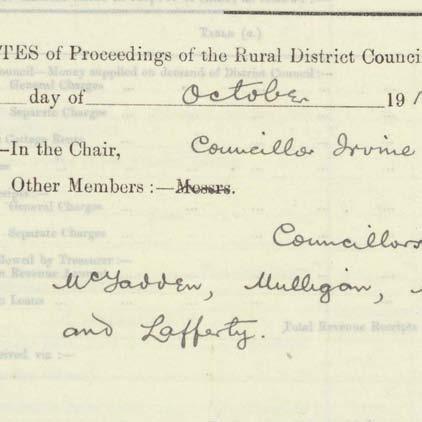 TES of Proceedings of the Rural District Counci
day of October 191
—In the Chair, Councillor Irvine
Other Members :—Messrs.
Councillors
McFadden, Mulligan,
and Lafferty.